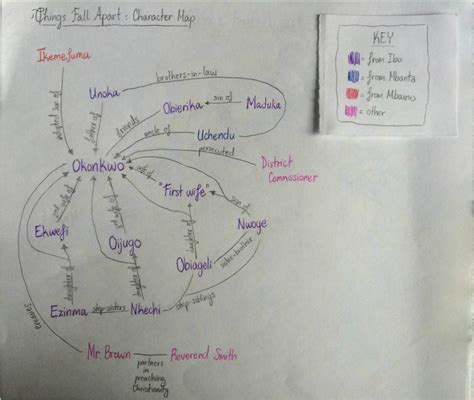 Things Fall Apart: Character Map
KEY
= from Ibo
= from Mbanta
= from Mbaino
= other
Ikemefuma
adopted son of
Unoka
brothers-in-law
father of
friends
Obierika
son of
Maduka
uncle of
Uchendu
persecuted
District
Commissioner
Okonkwo
wife of
wife of
wife of
"First wife"
son of
Nwoye
Ekwefi
Ojiugo
Obiageli
sister-brother
daughter of
daughter of
daughter of
Ezinma
step-sisters
Nkechi
step-siblings
enemies
Mr. Brown
partners
in
preaching
Christianity
Reverend Smith